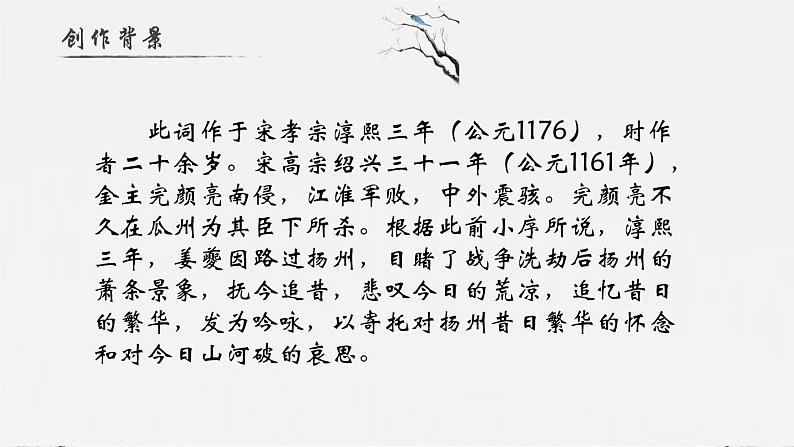 创作背景
此词作于宋孝宗淳熙三年（公元1176），时作
者二十余岁。宋高宗绍兴三十一年（公元1161年），
金主完颜亮南侵，江淮军败，中外震骇。完颜亮不
久在瓜州为其臣下所杀。根据此前小序所说，淳熙
三年，姜夔因路过扬州，目睹了战争洗劫后扬州的
萧条景象，抚今追昔，悲叹今日的荒凉，追忆昔日
的繁华，发为吟咏，以寄托对扬州昔日繁华的怀念
和对今日山河破的哀思。